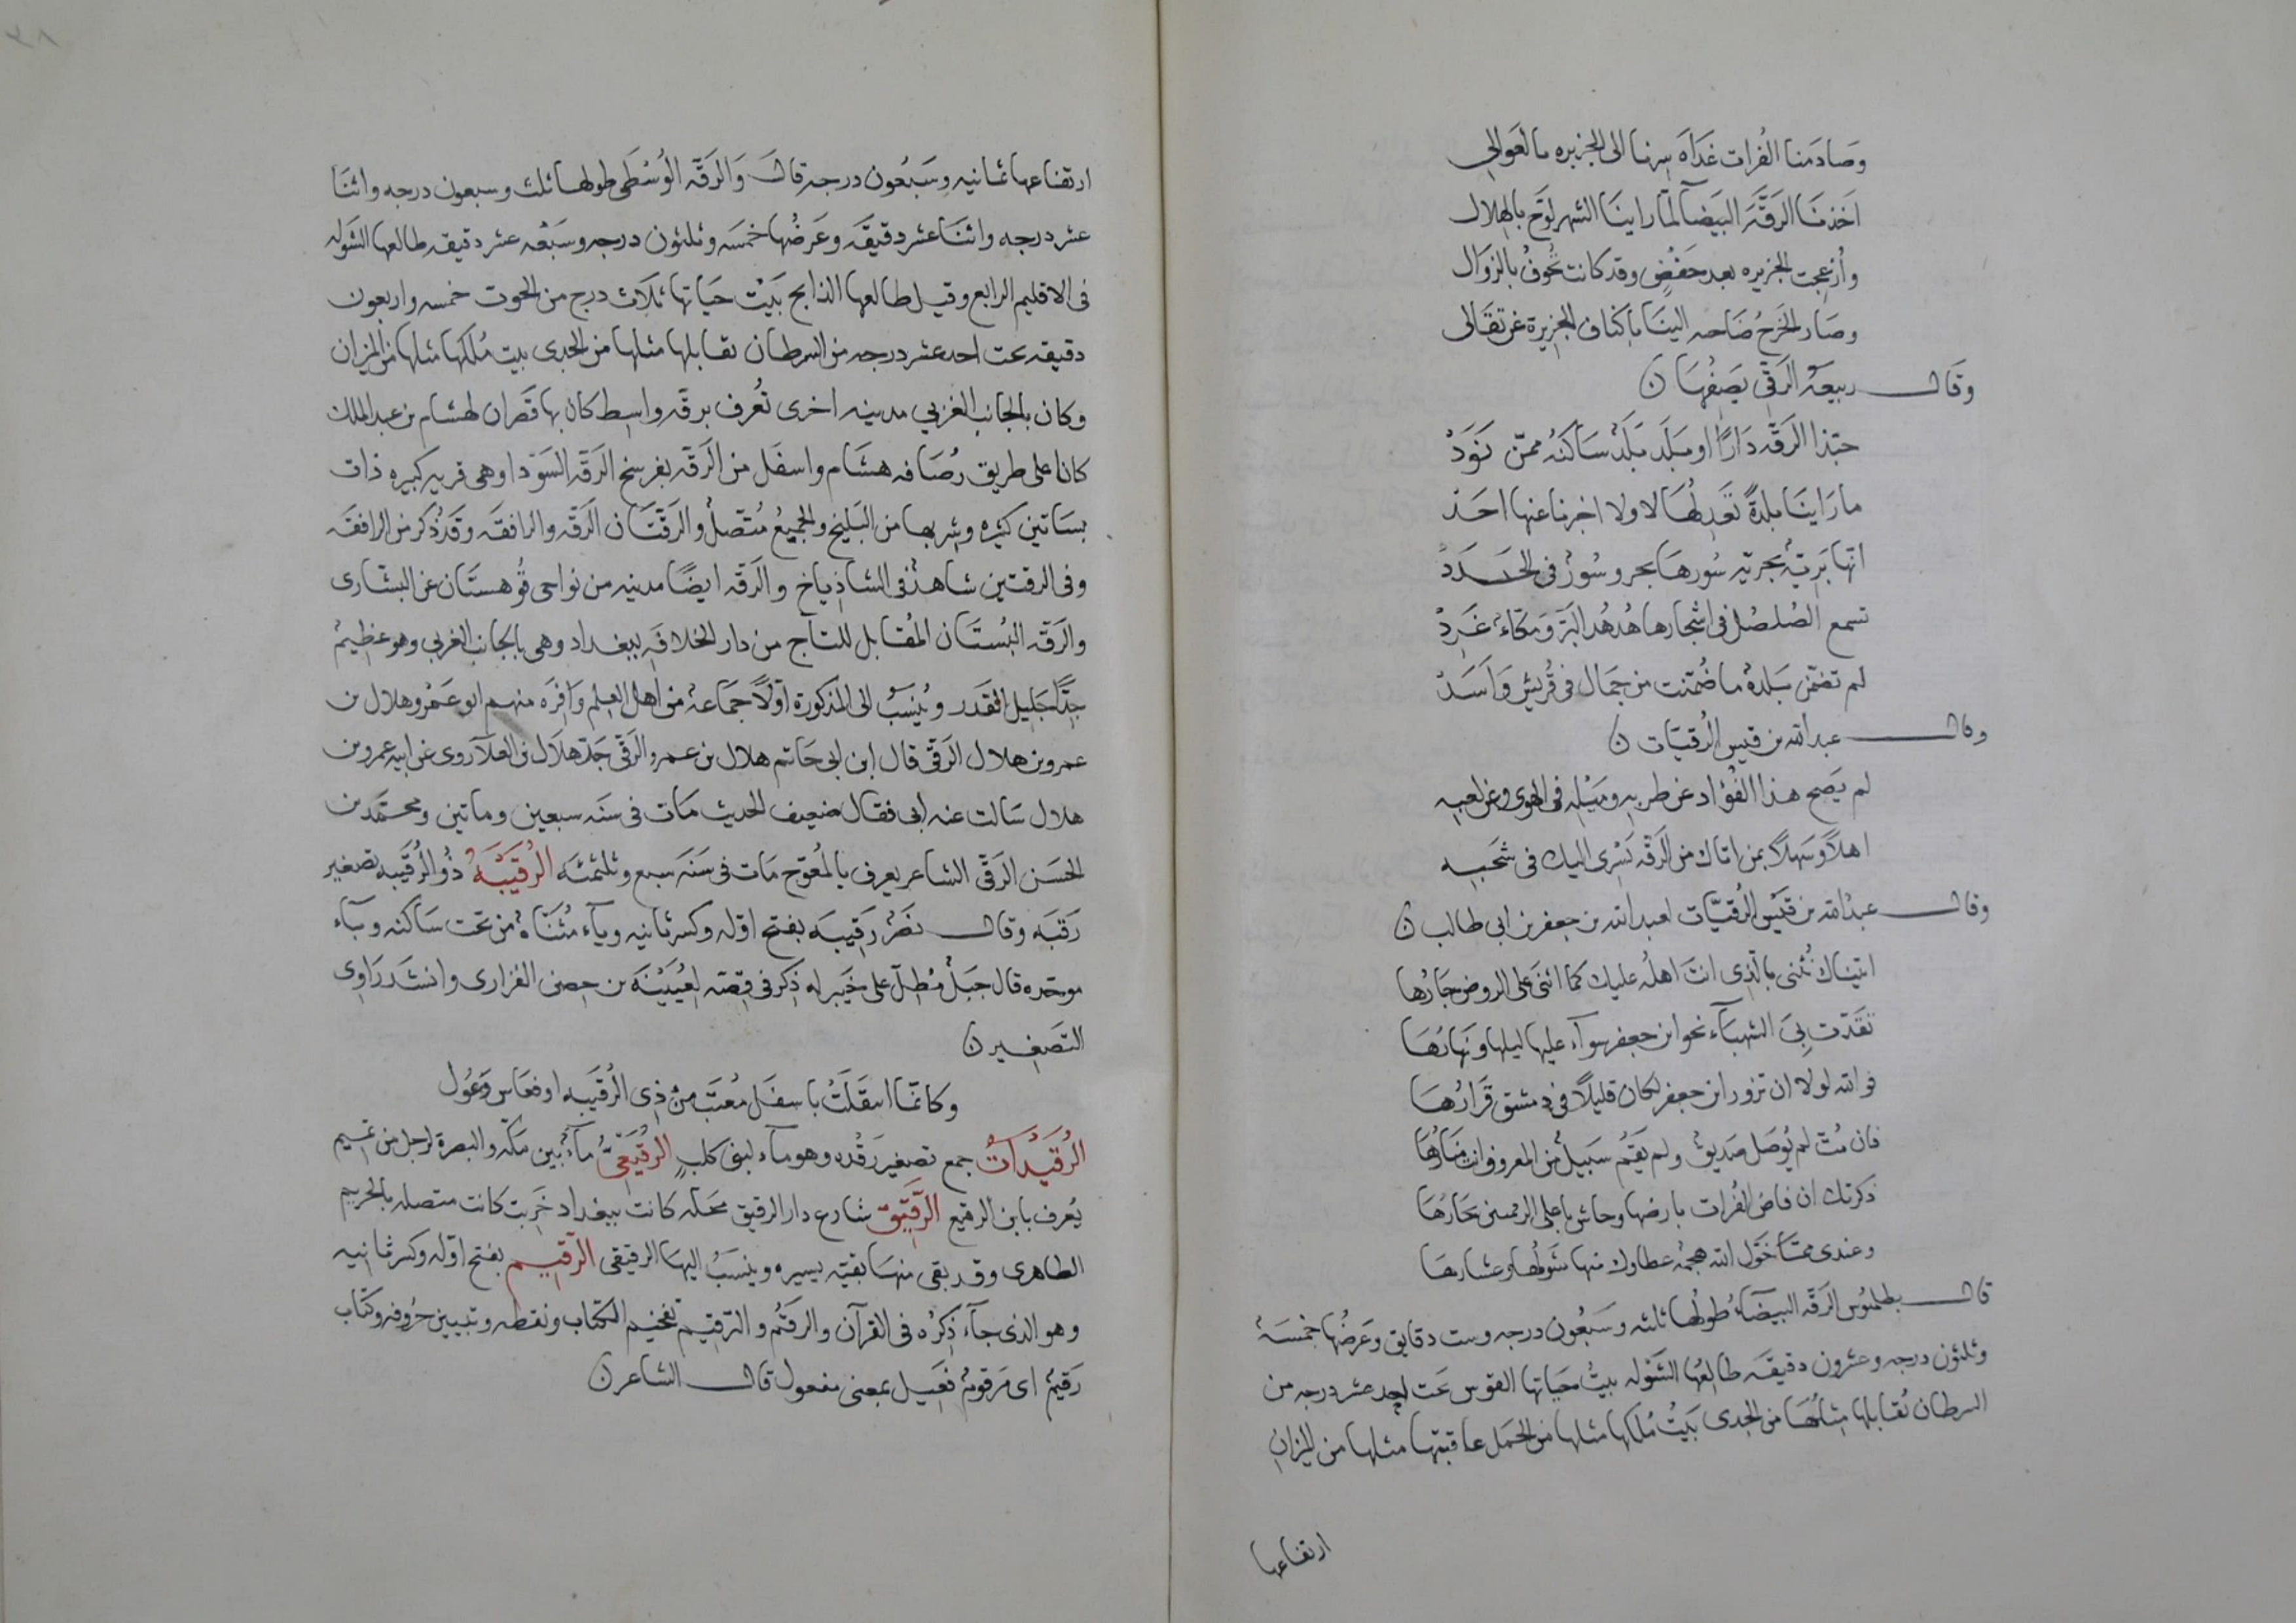 وصادمنا الفرات غداه سرنا الى الجزيره بالعوالي
اخذنا الرقة البيضآ لمّا راينا الشهر لوّح بالهلال
وازعجت الجزيره بعد خفض وقد كانت تخوف بالزوال
وصار الخرج ضاحيه الينا باكناف الجزيرة عن تقالى
وقال ربيعة الرقي يصفها ن
حبّذا الرقّه دارًا او بلد بلد ساكنه ممّن نودّ
ما راينا بلدةً تعدلها لا ولا اخبرنا عنها احد
انّها بريّة بحريّه سورها بحر وسور في الجدد
تسمع الصلصل في اشجارها هدهد البرّ ومكّاء غرد
لم تضمّن بلدة ما ضمّنت من جمال في قريش واسد
وقال عبد الله بن قيس الرقيّات ن
لم يصح هذا الفؤاد عن طربه وميله في الهوى وعن لعبه
اهلاً وسهلاً بمن اتاك من الرقّه يسرى اليك في شحبه
وقال عبد الله بن قيس الرقيّات لعبد الله بن جعفر بن ابى طالب ن
اتيناك نثنى بالذى انت اهله عليك كما اثنى على الروض جارها
تقدّت بي الشهبآء نحو ابن جعفر سوآء عليها ليلها ونهارها
فو الله لولا ان تزور ابن جعفر لكان قليلاً في دمشق قرارها
فان متّ لم يوصل صديق ولم يقم سبيل من المعروف انت منارها
ذكرتك ان فاض الفرات بارضها وجاش باعلى الرقمتين بحارها
وعندى ممّا خوّل الله هجمة عطاوك منها شولها وعشارها
قال بطلميوس الرقّه البيضاء طولها ثلثه وسبعون درجه وست دقايق وعرضها خمسة
وثلثون درجه وعشرون دقيقه طالعها الشوله بيت حياتها القوس تحت احد عشر درجه من
السرطان تقابلها مثلها من الجدى بيت ملكها مثلها من الحمل عاقبتها مثلها من الميزان
ارتفاعها
ارتفاعها ثمانيه وسبعون درجه قال والرقّه الوسطى طولها ثلث وسبعون درجه واثنا
عشر درجه واثنا عشر دقيقه وعرضها خمسه وثلثون درجه وسبعه عشر دقيقه طالعها الشوله
في الاقليم الرابع وقيل طالعها الذابح بيت حياتها ثلاث درج من الحوت خمسه واربعون
دقيقه تحت احد عشر درجه من السرطان تقابلها مثلها من الجدى بيت ملكها مثلها من الميزان
وكان بالجانب الغربي مدينه اخرى تعرف برقّه واسط كان بها قصران لهشام بن عبد الملك
كانا على طريق رصافه هشام واسفل من الرقّه بفرسخ الرقّه السودا وهى قريه كبيره ذات
بساتين كثيره وشربها من البليخ والجميع متّصل والرقّتان الرقّه والرافقه وقد ذكر من الرافقه
وفي الرقتين شاهد في الشاذياخ والرقّه ايضًا مدينه من نواحى قوهستان عن البشّارى
والرقّه البستان المقابل للتاج من دار الخلافه ببغداد وهى بالجانب الغربي وهو عظيم
جدًّا جليل القدر وينسب الى المذكورة اوّلاً جماعة من اهل العلم وافره منهم ابو عمرو هلال بن
عمرو بن هلال الرقّى قال ابن ابى حاتم هلال بن عمرو الرقّى جدّ هلال بن العلآ روى عن ابيه عمرو بن
هلال سالت عنه ابى فقال ضعيف الحديث مات في سنه سبعين وماتين ومحمّد بن
الحسن الرقّى الشاعر يعرف بالمعوّج مات في سنه سبع وثلثمئه الرقيبة ذو الرقيبه تصغير
رقبه وقال نصر رقيبه بفتح اوّله وكسر ثانيه وياء مثنّاة من تحت ساكنه وباء
موحّده قال جبل مطلّ على خيبر له ذكر في قصّه لعيينه بن حصن الفزارى وانشد راوى
التصغير ن
وكانّما انتقلت باسفل معتب من ذى الرقيبه او قعاس وعول
الرقيدات جمع تصغير رقده وهو مآء لبنى كلب الرقيعيّ مآء بين مكّه والبصرة لرجل من تميم
يعرف بابن الرقيع الرقيق شارع دار الرقيق محلّه كانت ببغداد خربت كانت متصله بالحريم
الطاهرى وقد بقى منها بقيّه يسيره وينسب اليها الرقيقى الرقيم بفتح اوّله وكسر ثانيه
وهو الذى جآء ذكره في القرآن والرقم والترقيم تفخيم الكتاب ونقطه وتبيين حروفه وكتاب
رقيم اى مرقوم فعيل بمعنى مفعول قال الشاعر ن